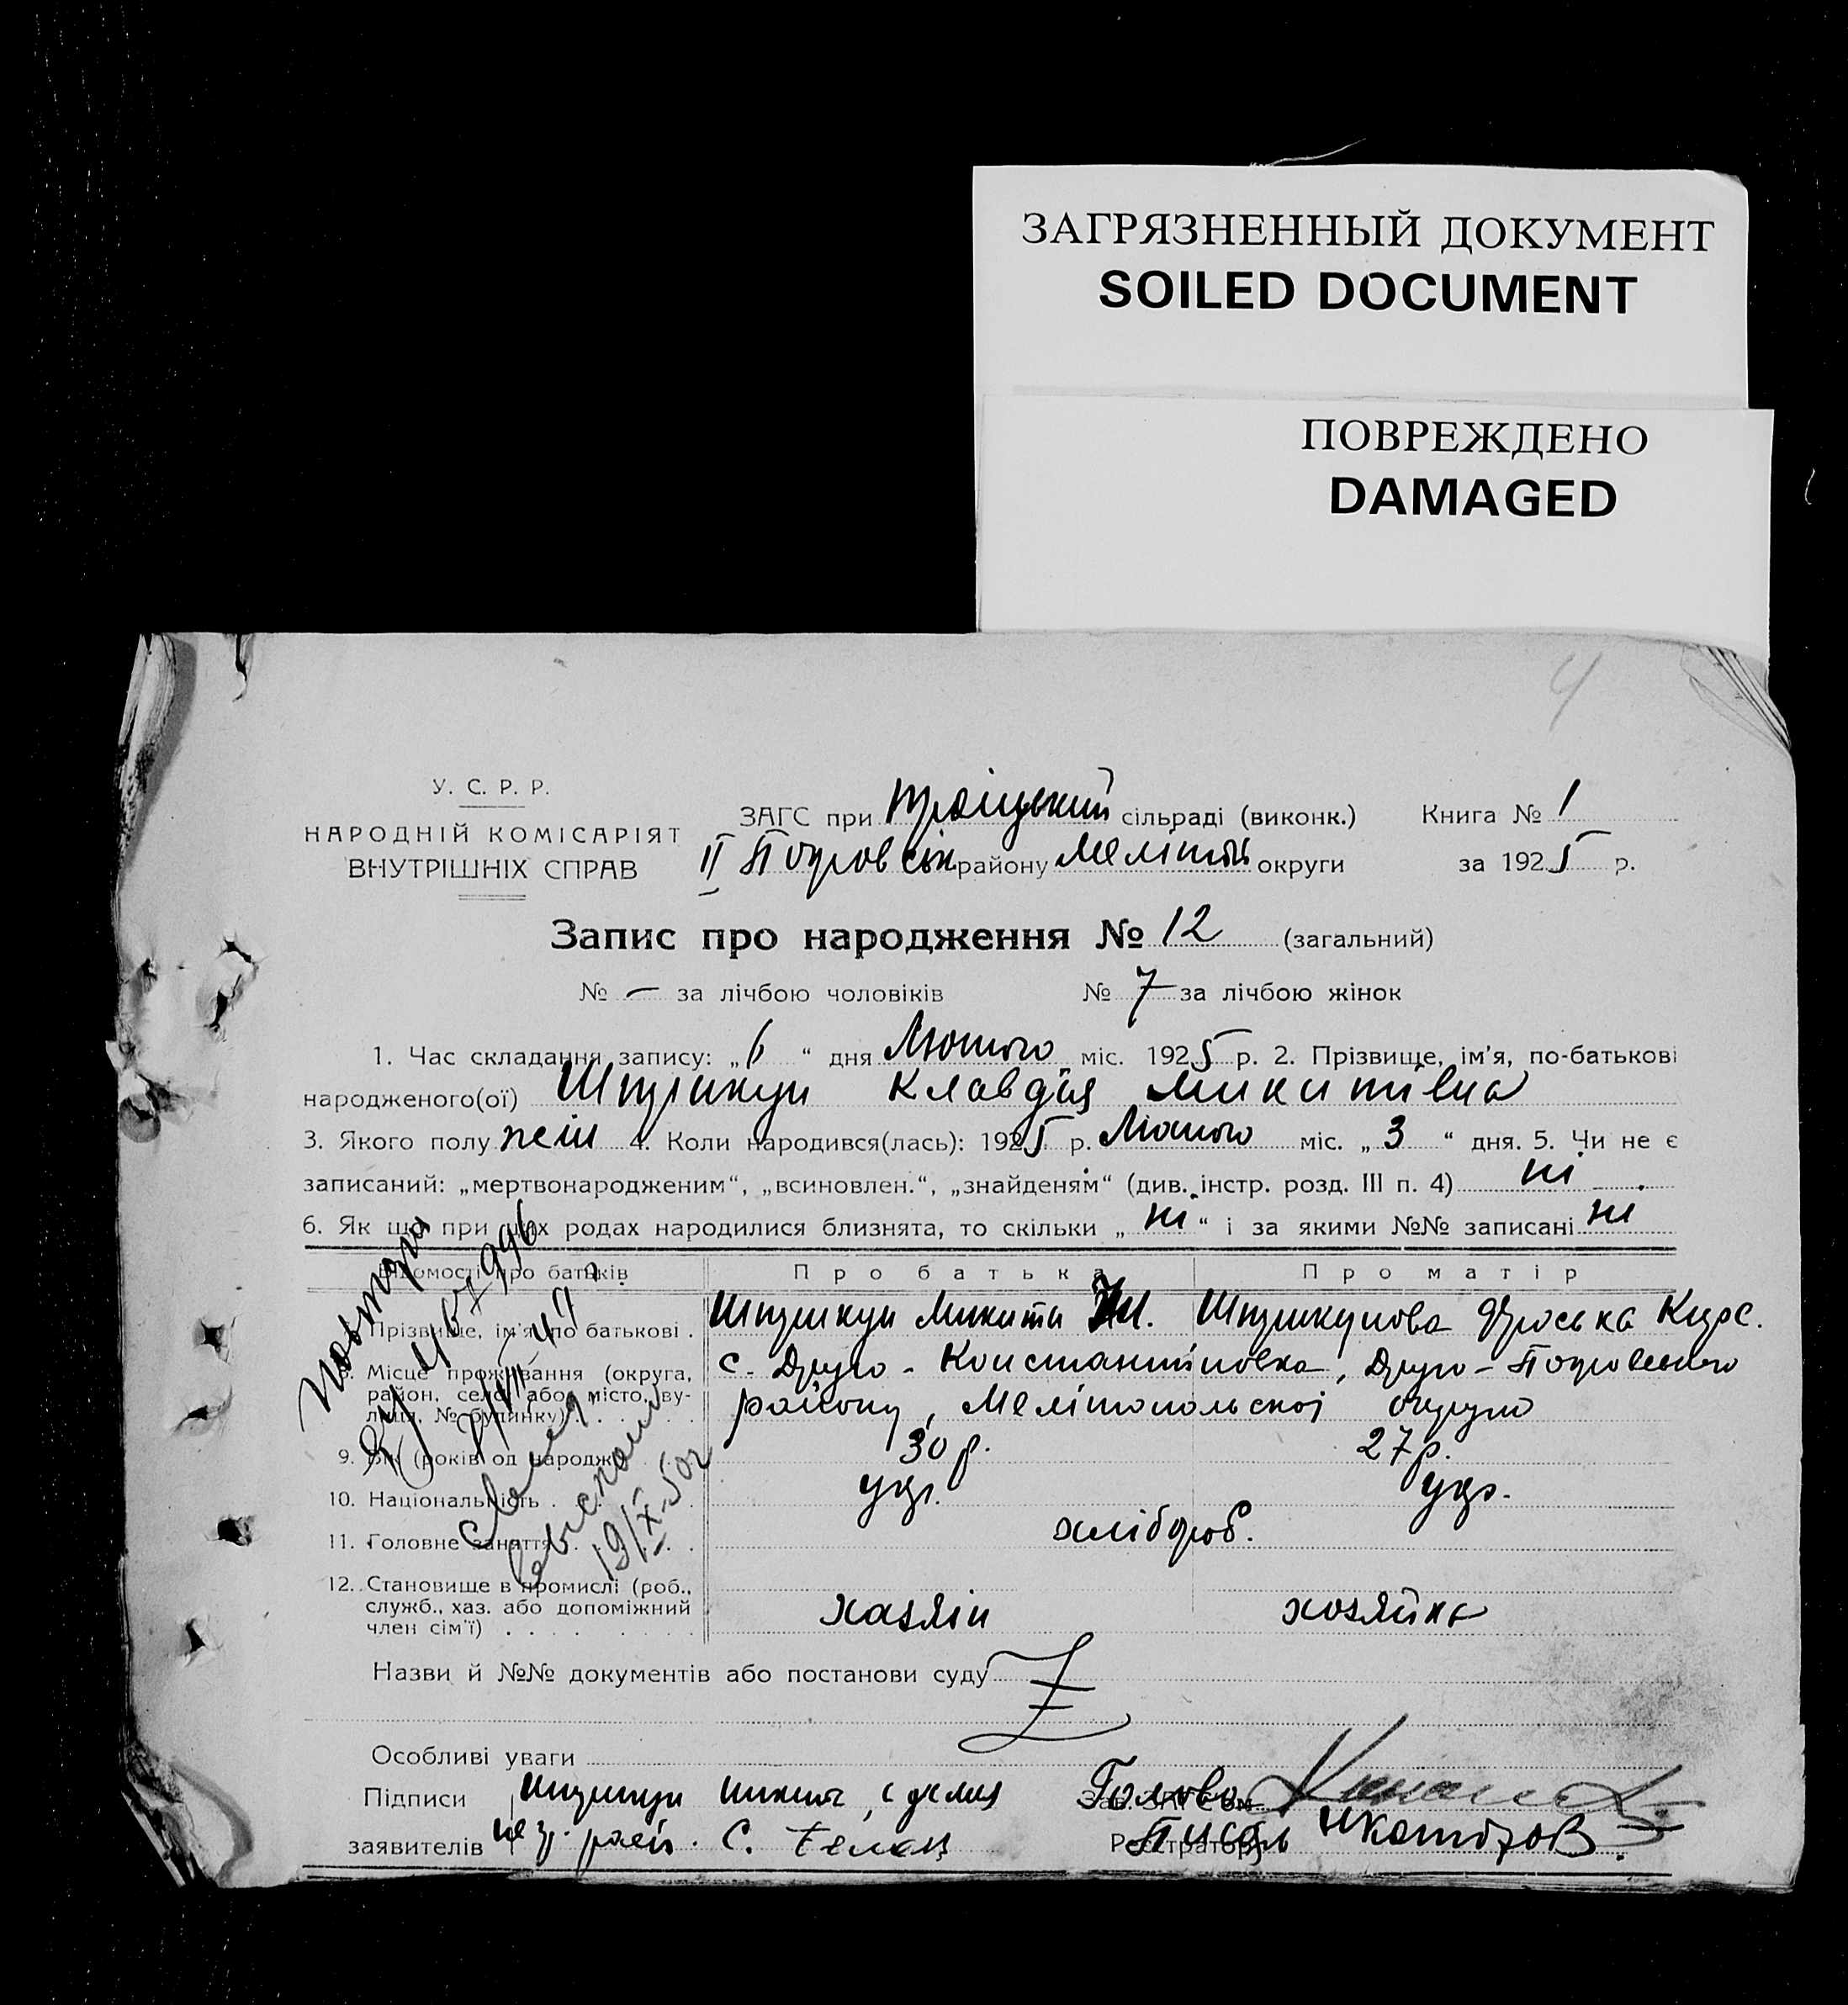 ЗАГРЯЗНЕННЫЙ ДОКУМЕНТ
SOILED DOCUMENT
ПОВРЕЖДЕНО
DAMAGED
4
У. С. Р. Р.
НАРОДНІЙ КОМІСАРІЯТ
ВНУТРІШНІХ СПРАВ
ЗАГС при Троіцький сільраді (виконк.) Книга № 1
II Покровськ району Меліт. округи за 1925 р.
Запис про народження № 12 (загальний)
№ — за лічбою чоловіків № 7 за лічбою жінок
1. Час складання запису: „6“ дня Лютого міс. 1925 р. 2. Прізвище, ім'я, по-батькові
народженого(ої) Клавдія Микитівна
3. Якого полу жін 4. Коли народився(лась): 1925 р. Лютого міс. „3“ дня. 5. Чи не є
записаний: „мертвонародженим“, „всиновлен.“, „знайденям“ (див. інстр. розд. III п. 4) ні
6. Як що при цих родах народилися близнята, то скільки „ні“ і за якими №№ записані ні
Відомості про батьків Про батька Про матір
Прізвище, ім'я, по батькові . Микита
8. Місце проживання (округа, с. Друго-Константіновка, Друго-Покровського
район, село або місто, ву- району, Мелітопольскої округи
лиця, № будинку)
9. Вік (років од народж.) 30 р. 27 р.
10. Національність . укр. укр.
11. Головне заняття . хлібороб.
12. Становище в промислі (роб., служб., хаз. або допоміжний член сім'ї) хазяїн хозяйка
Повторн
19/IX-50г
Назви й №№ документів або постанови суду Z
Особливі уваги
Підписи Голова
Зав. ЗАГС'ом
заявителів
Реєстратор